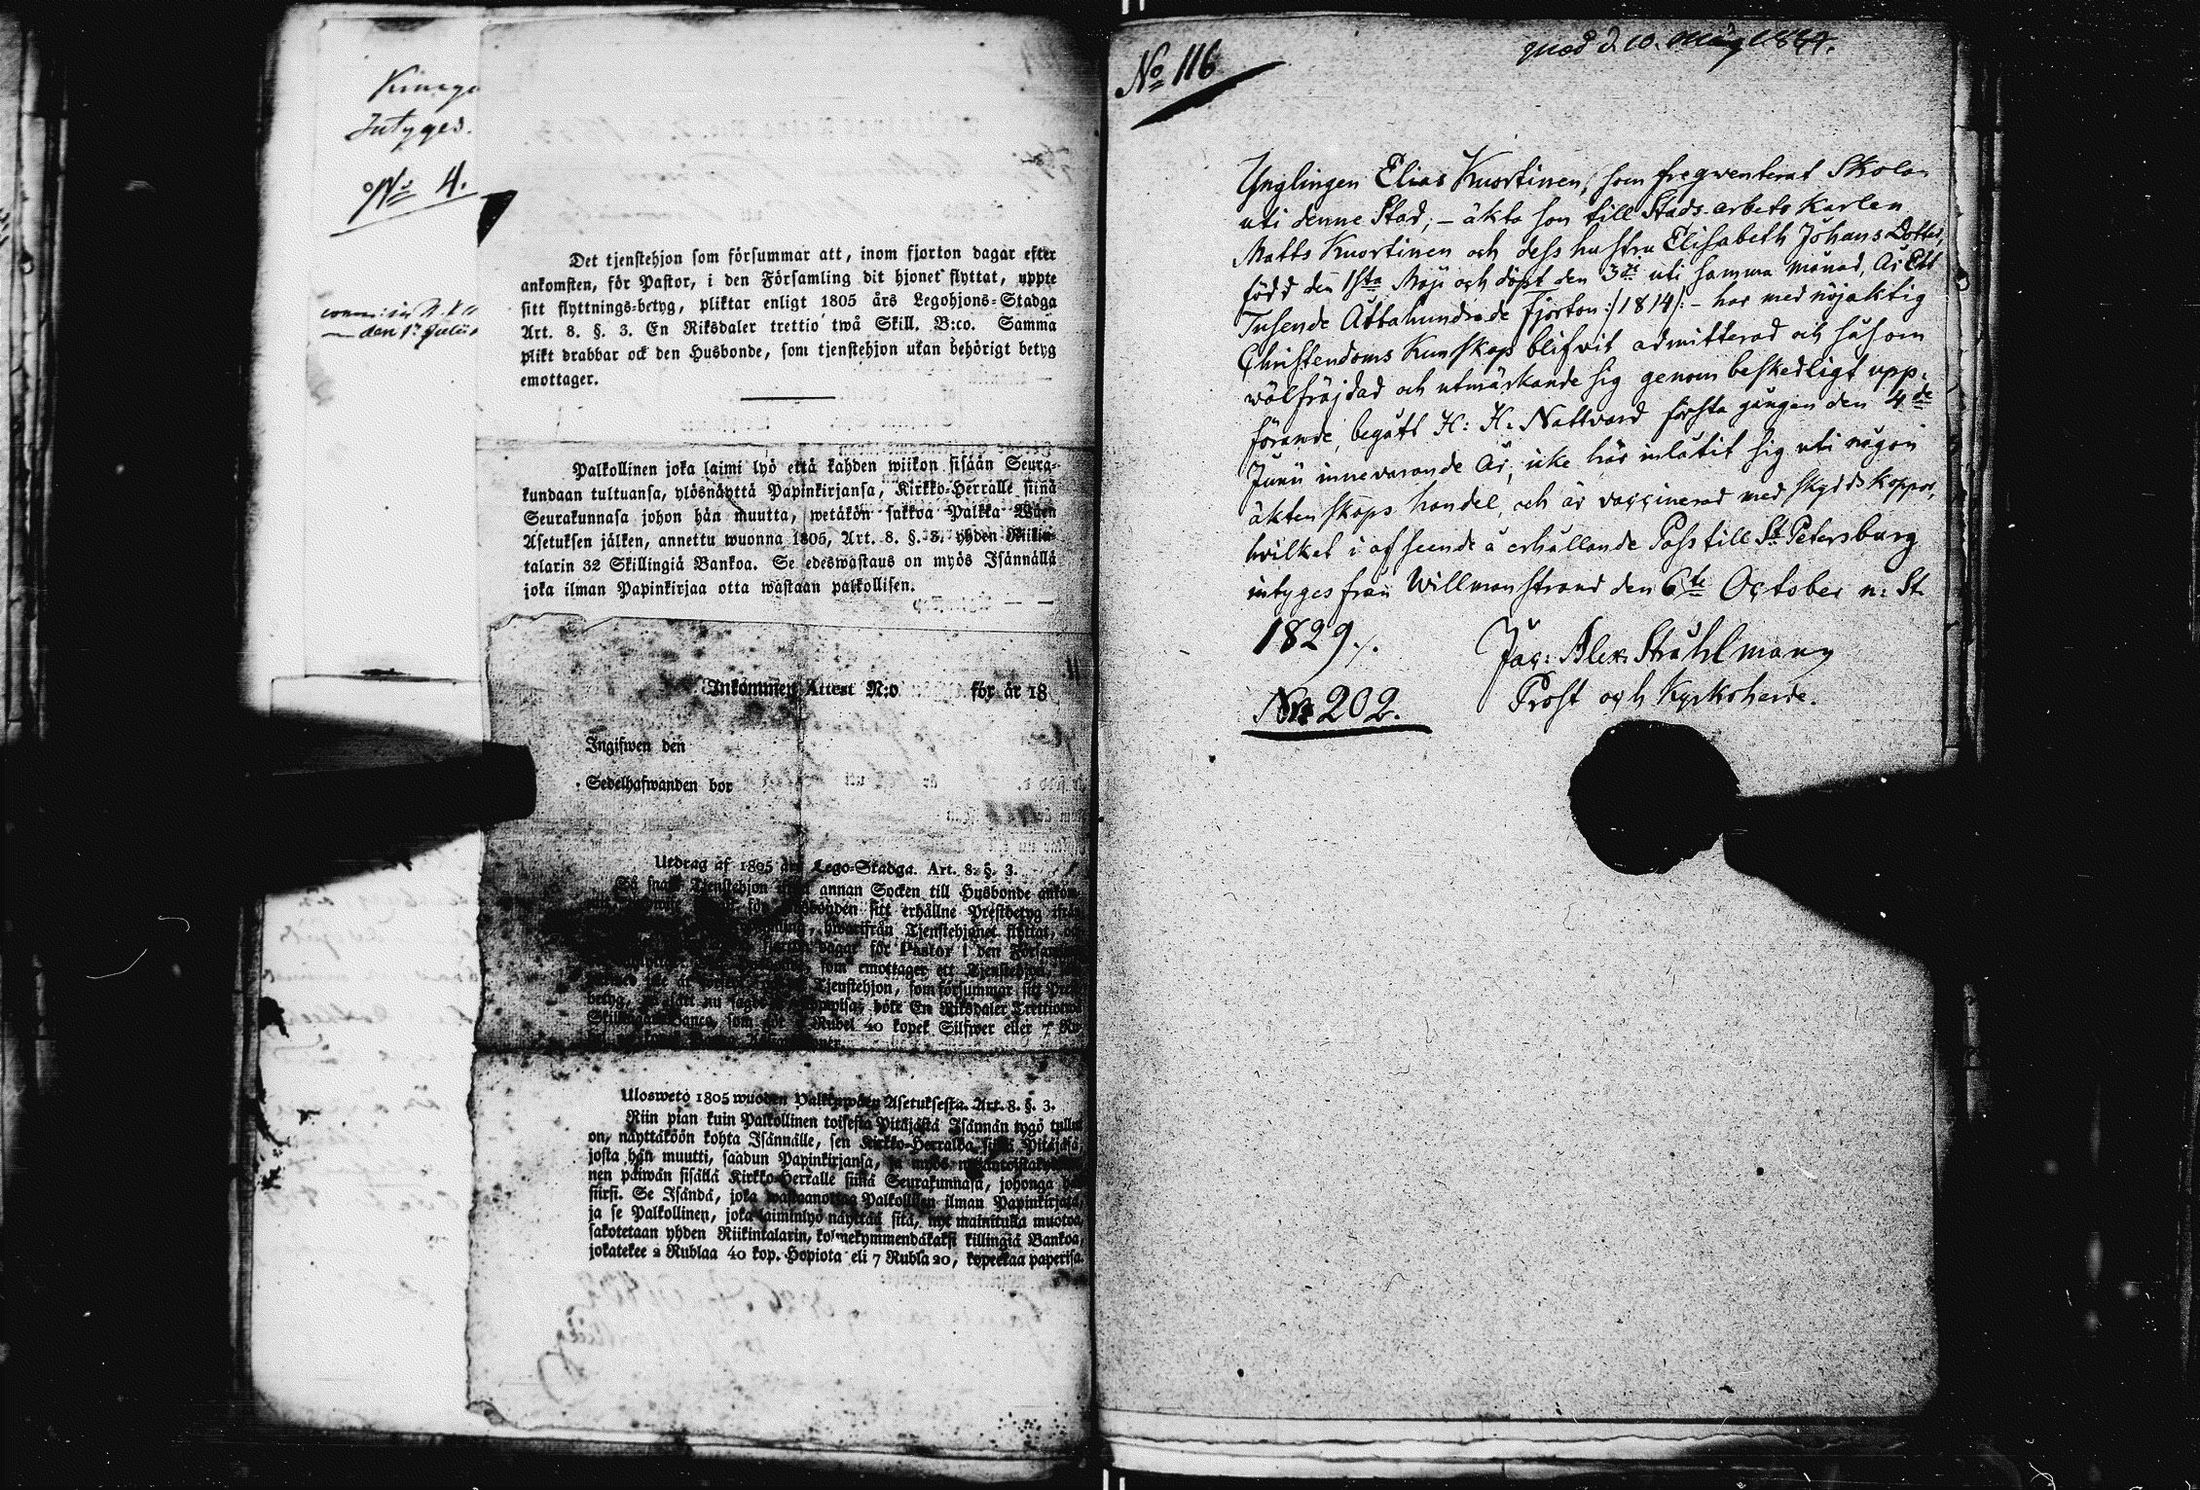 Intyges.
No 4.
Det tjenstehjon som försummar att, inom fjorton dagar efter
ankomsten, för Pastor, i den Församling dit hjonet flyttat, uppte
sitt flyttnings-betyg, pliktar enligt 1805 års Legohjons-Stadga
Art. 8. §. 3. En Riksdaler trettio twå Skill. B:co. Samma
plikt drabbar ock den Husbonde, som tjenstehjon utan behörigt betyg
emottager.
Palkollinen joka laimi lyö että kahden wiikon sisään Seura-
kundaan tultuansa, ylösnäyttä Papinkirjansa, Kirkko-Herralle siinä
Seurakunnasa johon hän muutta, wetäkön sakkoa Palkka Wäen
Asetuksen jälken, annettu wuonna 1805, Art. 8. §. 3. yhden Riikin-
talarin 32 Skillingiä Bankoa. Se edeswastaus on myös Isännällä
joka ilman Papinkirjaa otta wastaan palkollisen.
Inkommen Attest N:o för år 18
Ingifwen den
Sedelhafwanden bor
Utdrag af 1805 års Lego-Stadga. Art. 8. §. 3.
Så snart Tjenstehjon annan Socken till Husbonde
sitt erhållne Prestbetyg
hwarifrån Tjenstehjonet flyttat,
dagar för Pastor i den
som emottager ett Tjenstehjon,
Tjenstehjon, som försummar sitt
betyg, nu sagdt böte En Riksdaler Trettiotwå
Banco, som Rubel 40 kopek Silfwer eller 7
Uloswetö 1805 wuoden Palkkawäen Asetuksesta. Art. 8. §. 3.
Niin pian kuin Palkollinen toisesta Pitäjästä Isännän tygö tullut
on, näyttäköön kohta Isännälle, sen Kirkko-Herralda siinä Pitäjäsä
josta hän muutti, saadun Papinkirjansa, ja myös
nen päiwän sisällä Kirkko-Herralle siinä Seurakunnasa, johonga hän
siirsi. Se Isändä, joka wastaanottaa Palkollisen ilman Papinkirjata,
ja se Palkollinen, joka laiminlyö näyttää sitä, nyt mainitulla muotoa,
sakotetaan yhden Riikintalarin, kolmekymmendäkaksi killingiä Bankoa,
jokatekee 2 Rublaa 40 kop. Hopiota eli 7 Rubla 20, kopeekaa paperisa.
No 116
Ynglingen Elias Kuortinen, som freqwenterat Skolan
uti denne Stad, – äkta son till Stads-arbets Karlen
Matts Kuortinen och dess hustru Elisabeth Johans Dotter,
född den 1sta Maji och döpt den 3die uti samma månad, År Ett
Tusende Åttahundrade fjorton :/1814/: – har med nöjaktig
Christendoms Kunskap blifvit admitterad och såsom
wälfräjdad och utmärkande sig genom beskedligt upp-
förande, begått H: H: Nattvard första gången den 4de
Junii innevarande År, icke här inlåtit sig uti någon
äktenskaps handel, och är vaccinerad med skydds Koppor,
hvilket i afseende å erhållande Pass till St Petersburg
intyges från Willmanstrand den 6te October n: St.
1829./.
Jac: Alex: Stråhlmann
Prost och Kyrkoherde.
No 202.